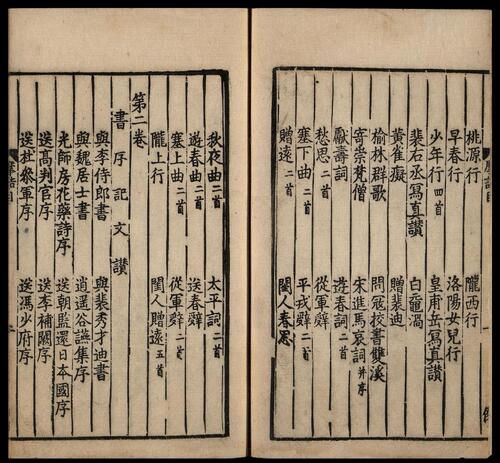 桃源行 隴西行
早春行 洛陽女兒行
少年行四首 皇甫岳寫真讚
裴右丞寫真讚 白黿渦
黃雀癡 贈裴迪
榆林群歌 問寇校書雙溪
寄崇梵僧 宋進馬哀詞并序
獻壽詞 遊春詞二首
愁思二首 從軍辭
塞下曲二首 平戎辭二首
贈遠二首 閨人春思
秋夜曲二首 太平詞二首
遊春曲二首 送春辭
塞上曲二首 從軍辭二首
隴上行 閨人贈遠五首
第二卷
書序記文讚
與李侍郎書 與裴秀才迪書
與魏居士書 逍遥谷讌集序
光師房花藥詩序 送朝監還日本國序
送高判官序 送李補闕序
送杜參軍序 送馮少府序